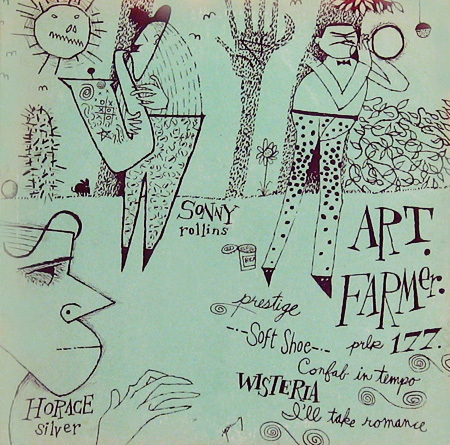 SONNY
rollins
ART.
FARMER.
prestige
prlp 177.
--- Soft Shoe ---
Confab in tempo
WISTERIA
I'll take romance
HORACE
silver